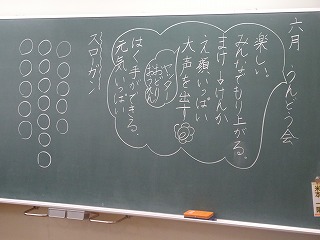 六月 うんどう会
楽しい。
みんなでもり上がる。
まけ・けんか
え顔いっぱい
大声を出す
ヤッター
おどり
はく手ができる。
元気いっぱい
スローガン